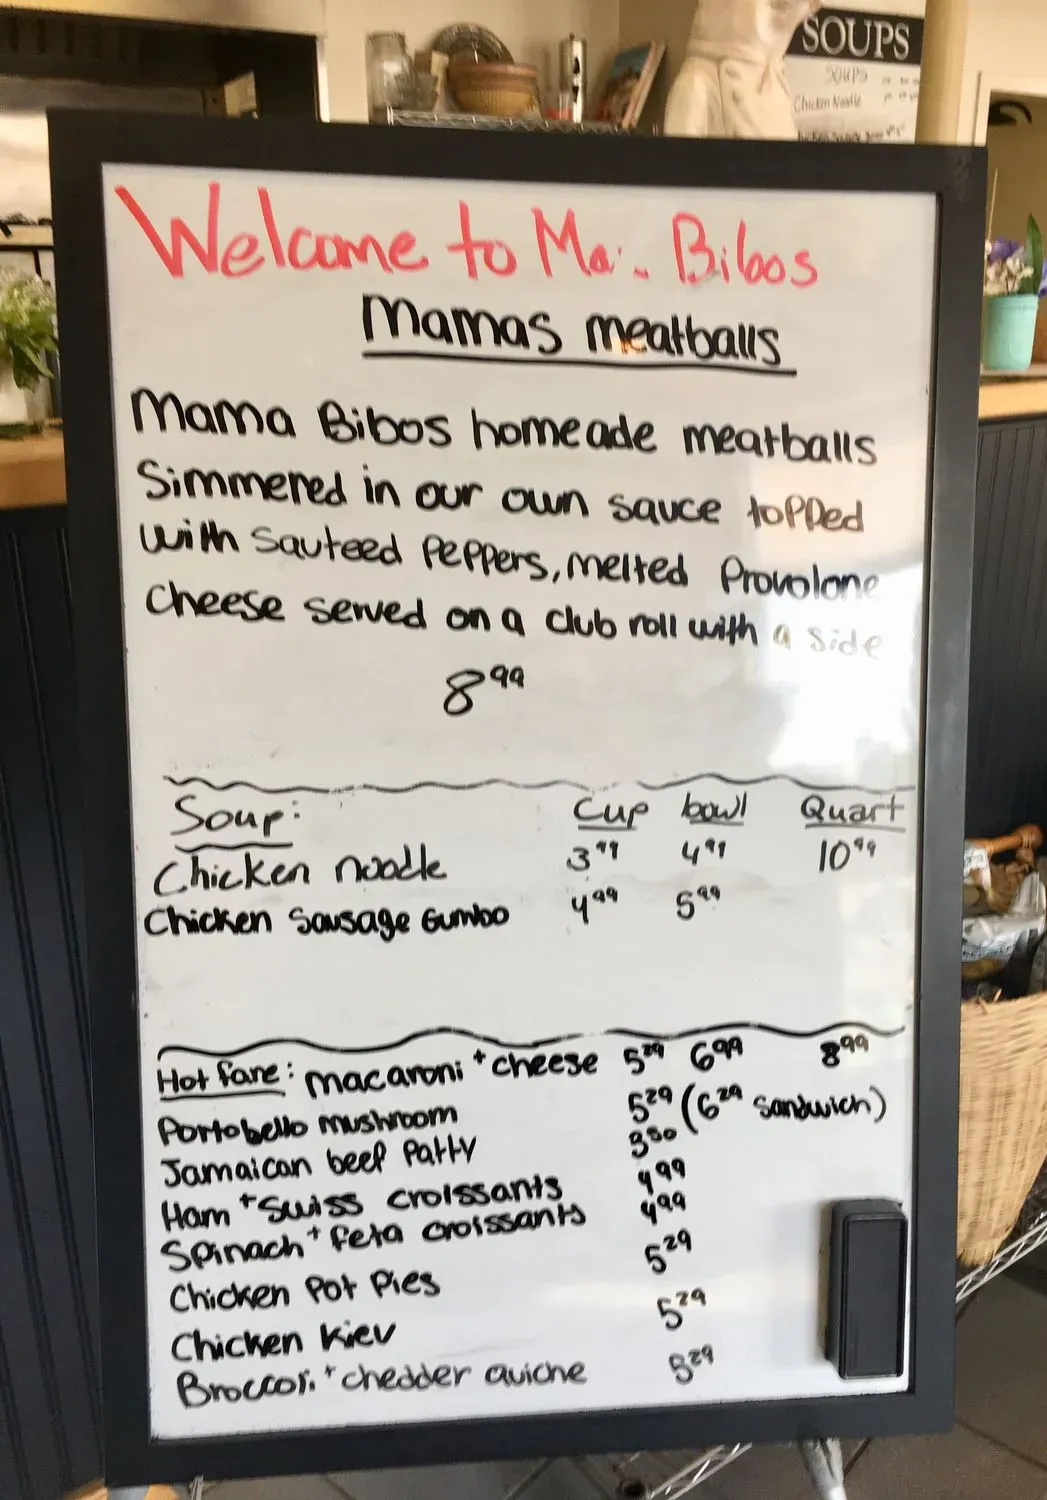 SOUPS
SOUPS
Chicken Noodle
Welcome to Ma. Bibos
Mamas meatballs
Mama Bibos homeade meatballs
Simmered in our own sauce topped
with Sauteed Peppers, melted Provolone
Cheese served on a club roll with a side
8 99
Soup: Cup bowl Quart
Chicken noodle 3 99 4 99 10 99
Chicken Sausage Gumbo 4 99 5 99
Hot fare: macaroni + cheese 5 29 6 99 8 99
Portobello mushroom 5 29 (6 29 sandwich)
Jamaican beef Patty 3 50
Ham + Swiss croissants 4 99
Spinach + feta croissants 4 99
Chicken Pot Pies 5 29
Chicken Kiev 5 29
Broccoli + chedder quiche 5 29